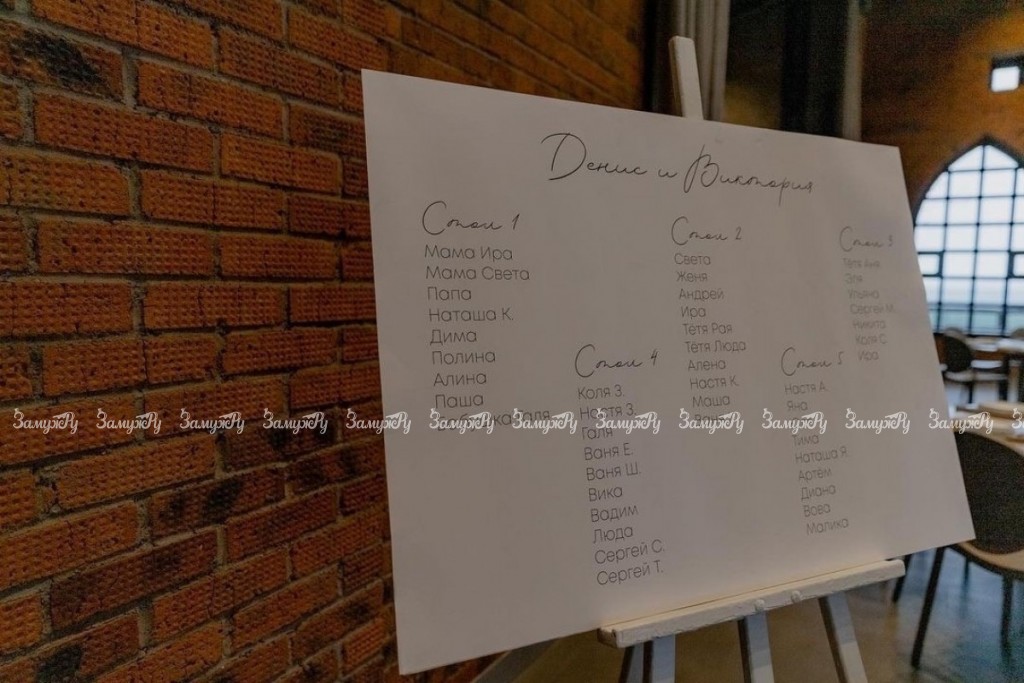 Денис и Виктория
Стол 1
Мама Ира
Мама Света
Папа
Наташа К.
Дима
Полина
Алина
Паша
Бабушка Галя
Стол 2
Света
Женя
Андрей
Ира
Тётя Рая
Тётя Люда
Алена
Настя К.
Маша
Стол 3
Тётя Аня
Эля
Ульяна
Сергей М.
Никита
Коля С.
Ира
Стол 4
Коля З.
Настя З.
Галя
Ваня Е.
Ваня Ш.
Вика
Вадим
Люда
Сергей С.
Сергей Т.
Стол 5
Настя А.
Яна
Тима
Наташа Я.
Артём
Диана
Вова
Малика
ЗамужРу ЗамужРу ЗамужРу ЗамужРу ЗамужРу ЗамужРу ЗамужРу ЗамужРу ЗамужРу ЗамужРу ЗамужРу ЗамужРу